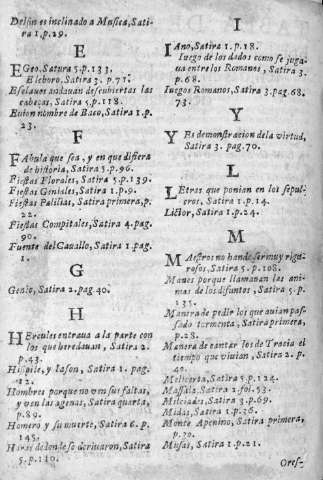 Delfin es inclinado a Musica, Sati-
ra 1.p.29.
E
EGeo. Satura 5.p.133.
Eleboro, Satira 3. p.71.
Esclauos andauan descubiertas las
cabeças, Satira 5.p.118.
Euion nombre de Baco, Satira 1.p.
23.
F
FAbula que sea, y en que difiera
de historia, Satira 5.p.96.
Fiestas Florales, Satira 5.p.139.
Fiestas Geniales, Satira 1.p.9.
Fiestas Palilias, Satira primera, p.
22.
Fiestas Compitales, Satira 4.pag.
90.
Fuente del Cauallo, Satira 1.pag.
1.
G
Genio, Satira 2.pag.40.
H
HErcules entraua a la parte con
los que heredauan, Satira 2.
p.43.
Hisipile, y Iason, Satira 1. pag.
12.
Hombres porque no ven sus faltas,
y ven las agenas, Satira quarta,
p.89.
Homero y su muerte, Satira 6. p.
145.
Haras de donde se deriuaron, Satira
5.p.110.
I
IAno, Satira 1.p.18.
Iuego de los dados como se juga-
ua entre los Romanos, Satira 3.
p.68.
Iuegos Romanos, Satira 3.pag.68.
73.
Y
Y Es demonstracion de la virtud,
Satira 3. pag.70.
L
LEtras que ponian en los sepul-
cros, Satira 1.p.14.
Lictor, Satira 1.p.24.
M
MAestros no han de ser muy rigu-
rosos, Satira 5.p.108.
Manes porque llamauan las ani-
mas de los difuntos, Satira 5.p.
135.
Manera de pedir los que auian pas-
sado tormenta, Satira primera,
p.28.
Manera de cantar los de Tracia el
tiempo que viuian, Satira 2. p.
40.
Melicerta, Satira 5.p.124.
Massala, Satira 2.fol.53.
Milciades, Satira 3.p.69.
Midas, Satira 1.p.36.
Monte Apenino, Satira primera,
p.30.
Musas, Satira 1.p.21.
Ores-